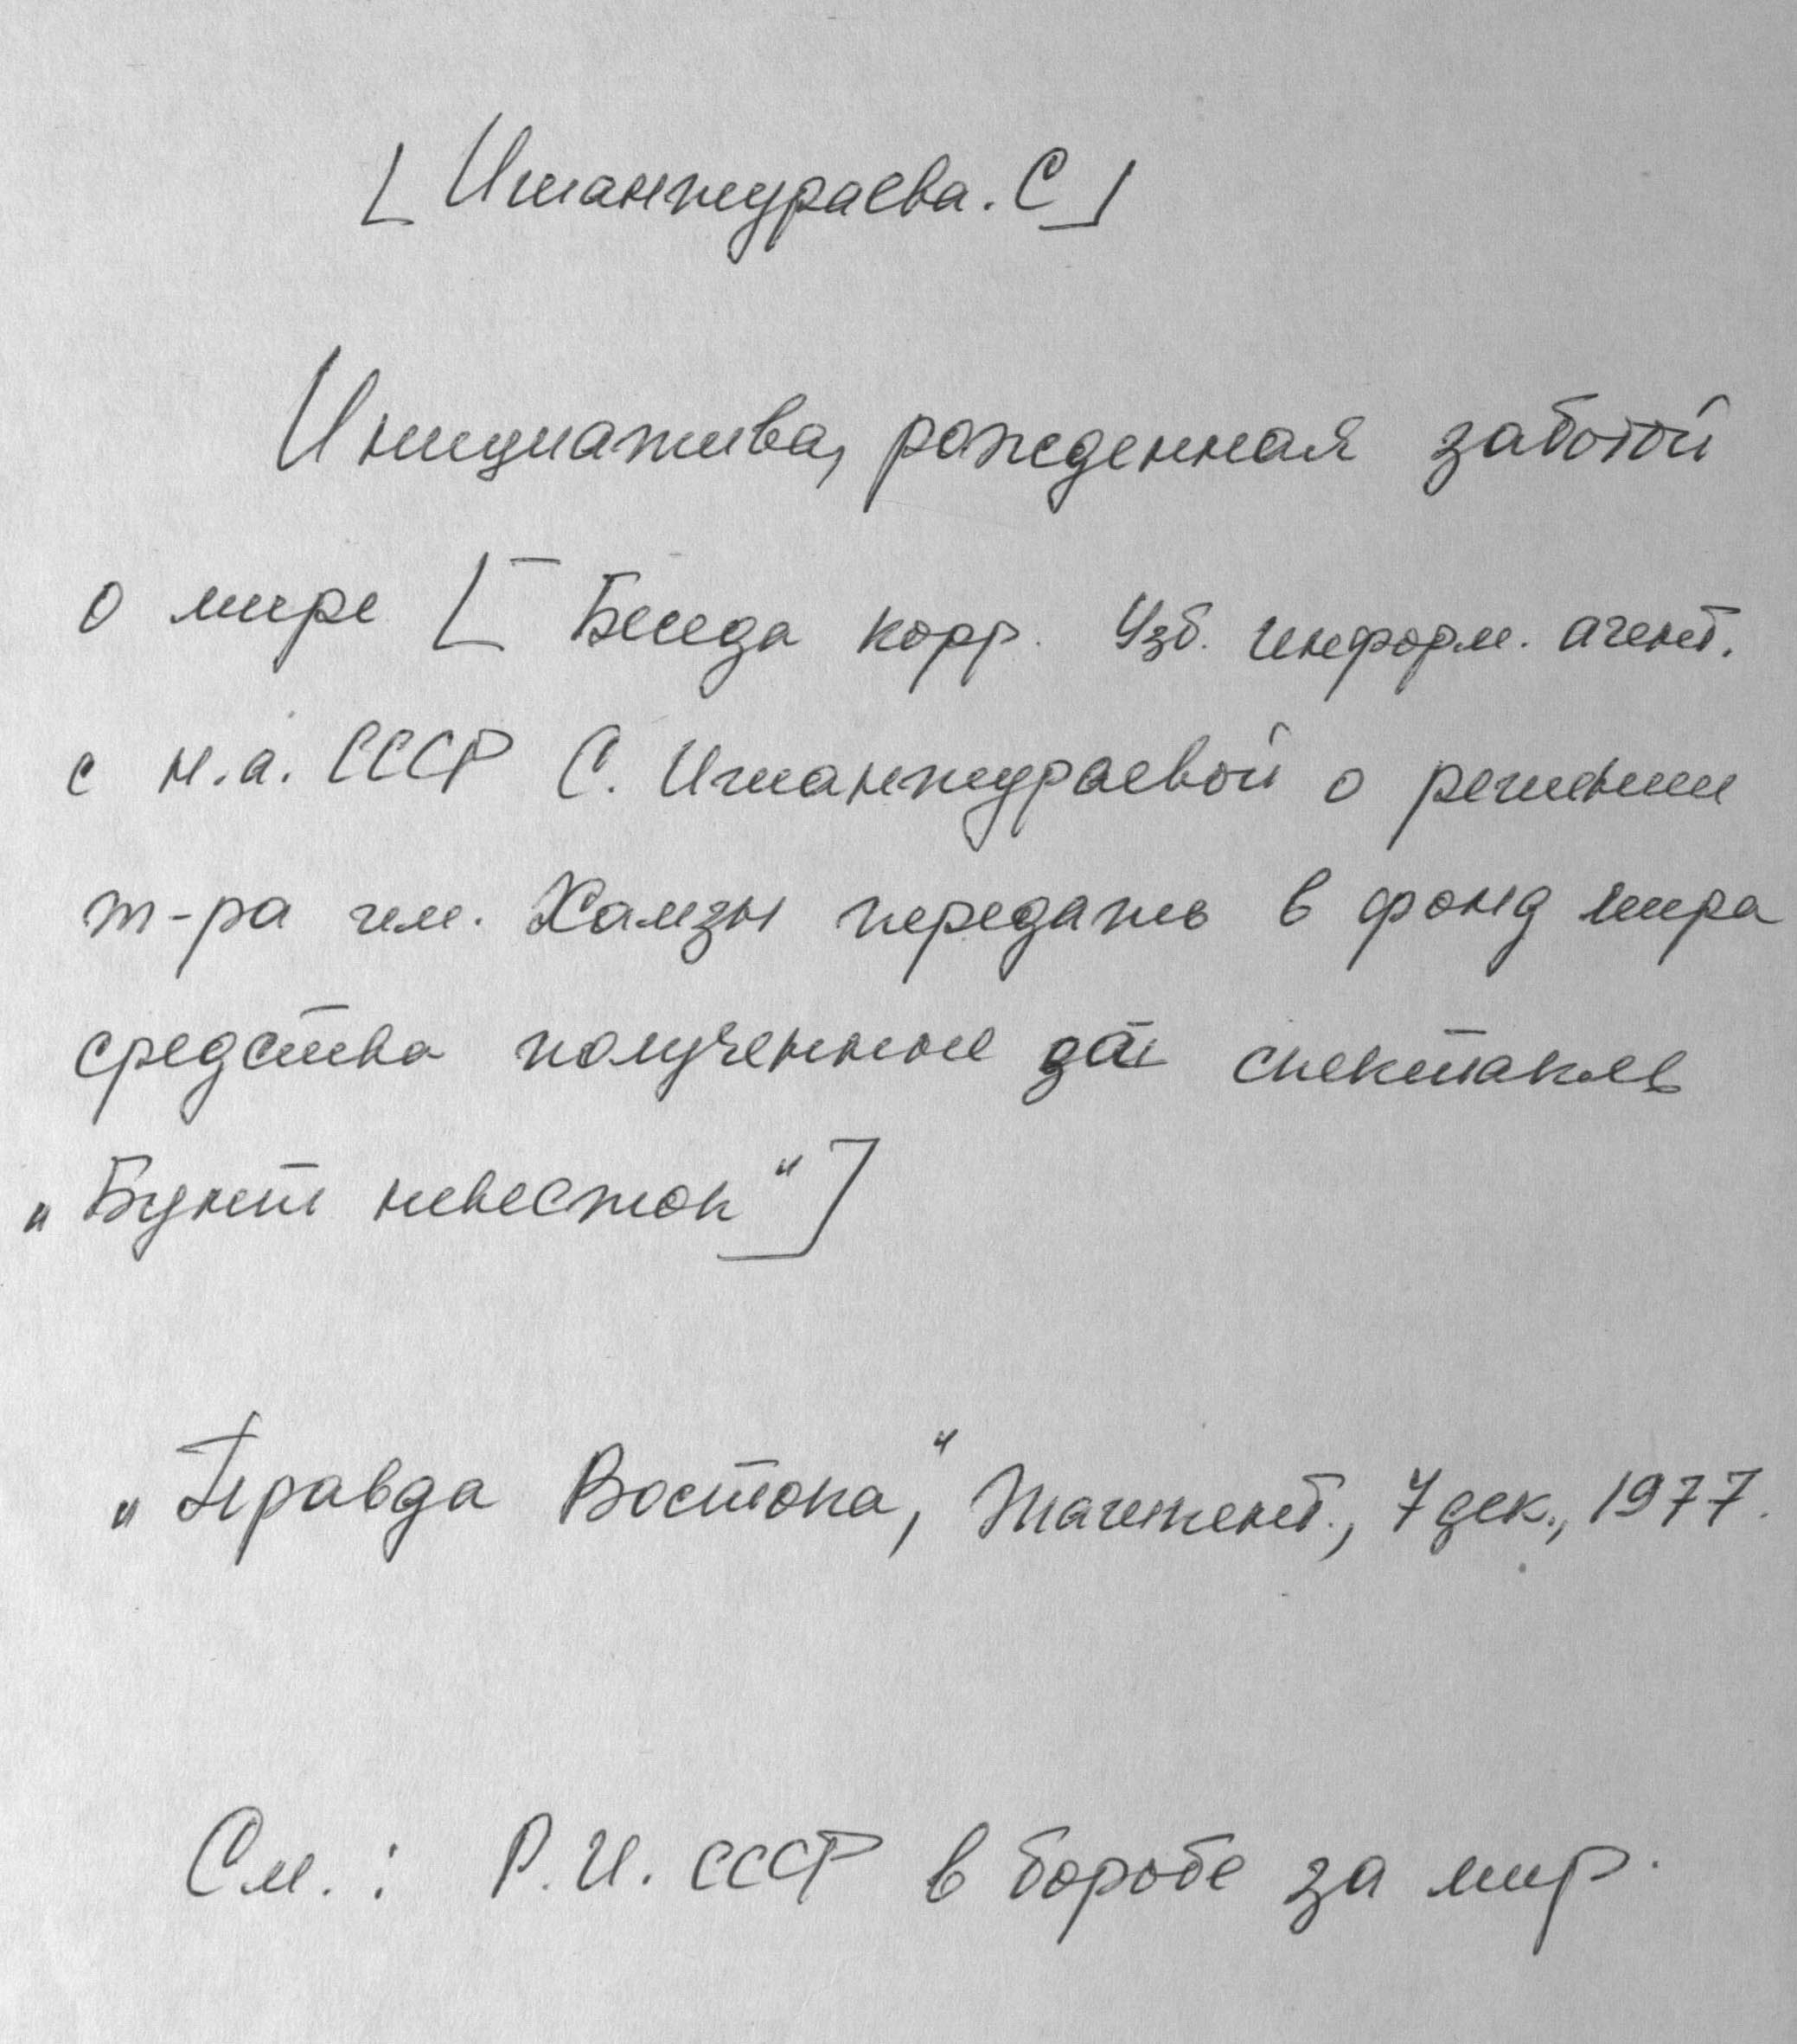 [Ишанжураева. С]
Инициатива, рожденная заботой
о мире [Беседа корр. Узб. информ. агент.
с н.а. СССР С. Ишанжураевой о решении
т-ра им. Хамзы передать в фонд мира
средства полученные за спектакль
„Бунт невесток"]
„Правда Востока," Ташкент., 7 дек., 1977.
См.: Р.И. СССР в борьбе за мир.